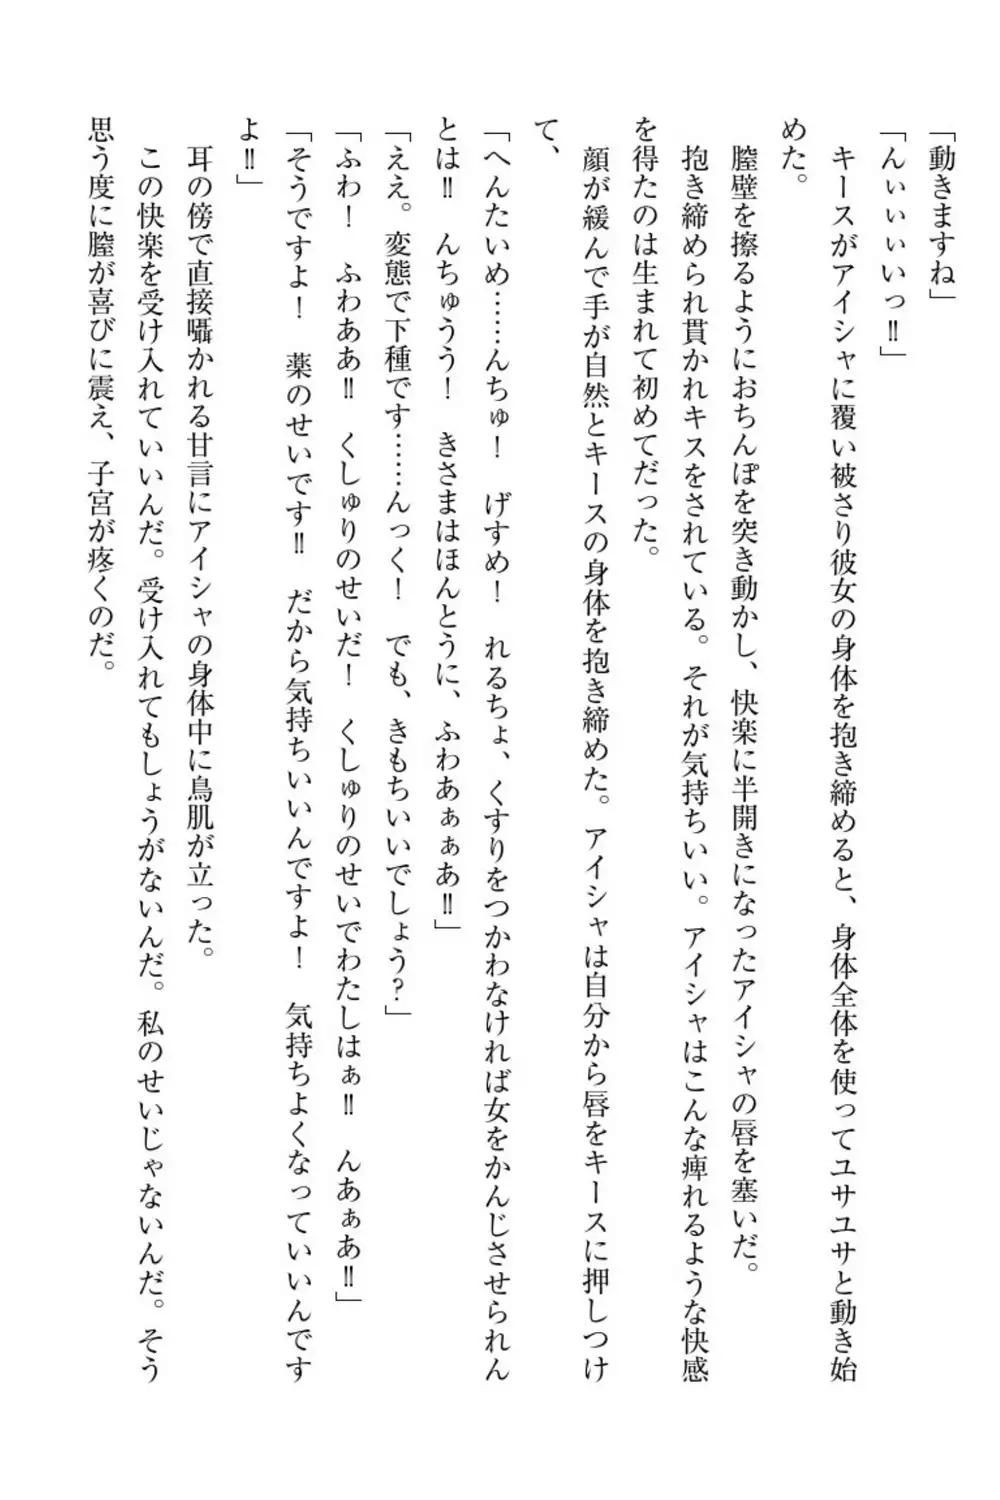 「動きますね」
「んぃぃぃいっ‼」
　キースがアイシャに覆い被さり彼女の身体を抱き締めると、身体全体を使ってユサユサと動き始
めた。
　膣壁を擦るようにおちんぽを突き動かし、快楽に半開きになったアイシャの唇を塞いだ。
　抱き締められ貫かれキスをされている。それが気持ちいい。アイシャはこんな痺れるような快感
を得たのは生まれて初めてだった。
　顔が緩んで手が自然とキースの身体を抱き締めた。アイシャは自分から唇をキースに押しつけ
て、
「へんたいめ……んちゅ！　げすめ！　れるちょ、くすりをつかわなければ女をかんじさせられん
とは‼　んちゅうう！　きさまはほんとうに、ふわあぁぁあ‼」
「ええ。変態で下種です……んっく！　でも、きもちいいでしょう？」
「ふわ！　ふわああ‼　くしゅりのせいだ！　くしゅりのせいでわたしはぁ‼　んあぁあ‼」
「そうですよ！　薬のせいです‼　だから気持ちいいんですよ！　気持ちよくなっていいんです
よ‼」
　耳の傍で直接囁かれる甘言にアイシャの身体中に鳥肌が立った。
　この快楽を受け入れていいんだ。受け入れてもしょうがないんだ。私のせいじゃないんだ。そう
思う度に膣が喜びに震え、子宮が疼くのだ。